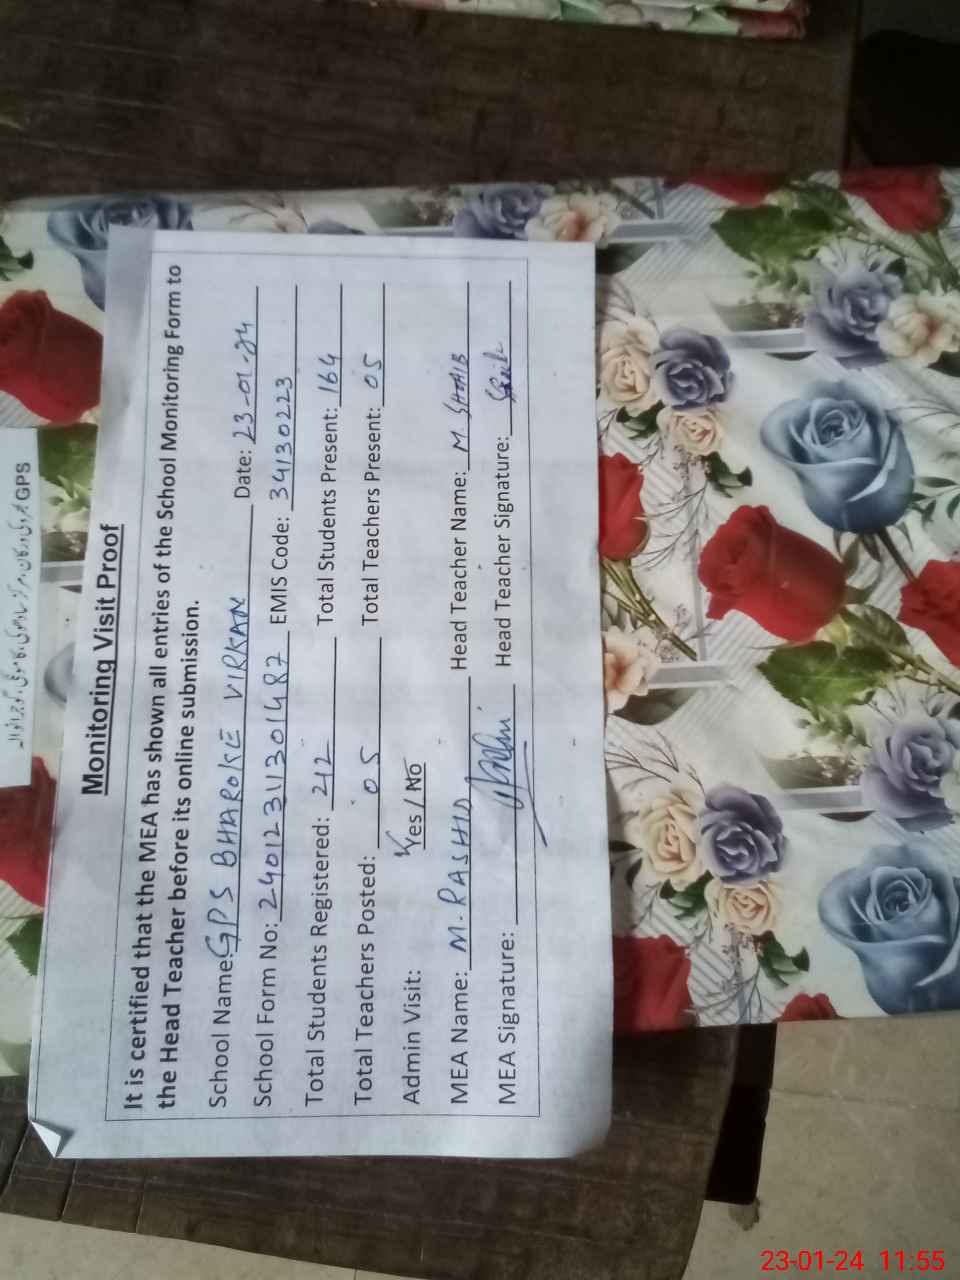 GPS
Monitoring Visit Proof
It is certified that the MEA has shown all entries of the School Monitoring Form to
the Head Teacher before its online submission.
School Name: GPS BHAROKE VIRKAN Date: 23-01-24
School Form No: 24012311301487 EMIS Code: 34130223
Total Students Registered: 212 Total Students Present: 164
Total Teachers Posted: 05 Total Teachers Present: 05
Admin Visit: Yes / No
MEA Name: M. RASHID Head Teacher Name: M. SHAIB
MEA Signature: Head Teacher Signature:
23-01-24 11:55